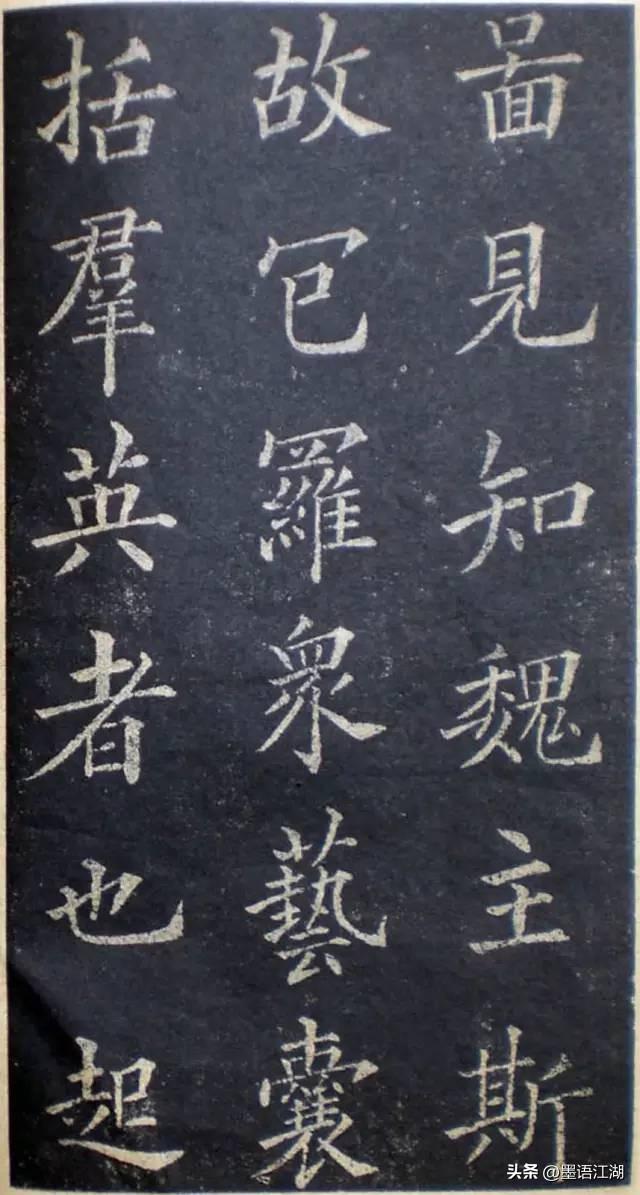 啚見知魏主斯
故包羅衆藝囊
括羣英者也起
头条 @墨语江湖